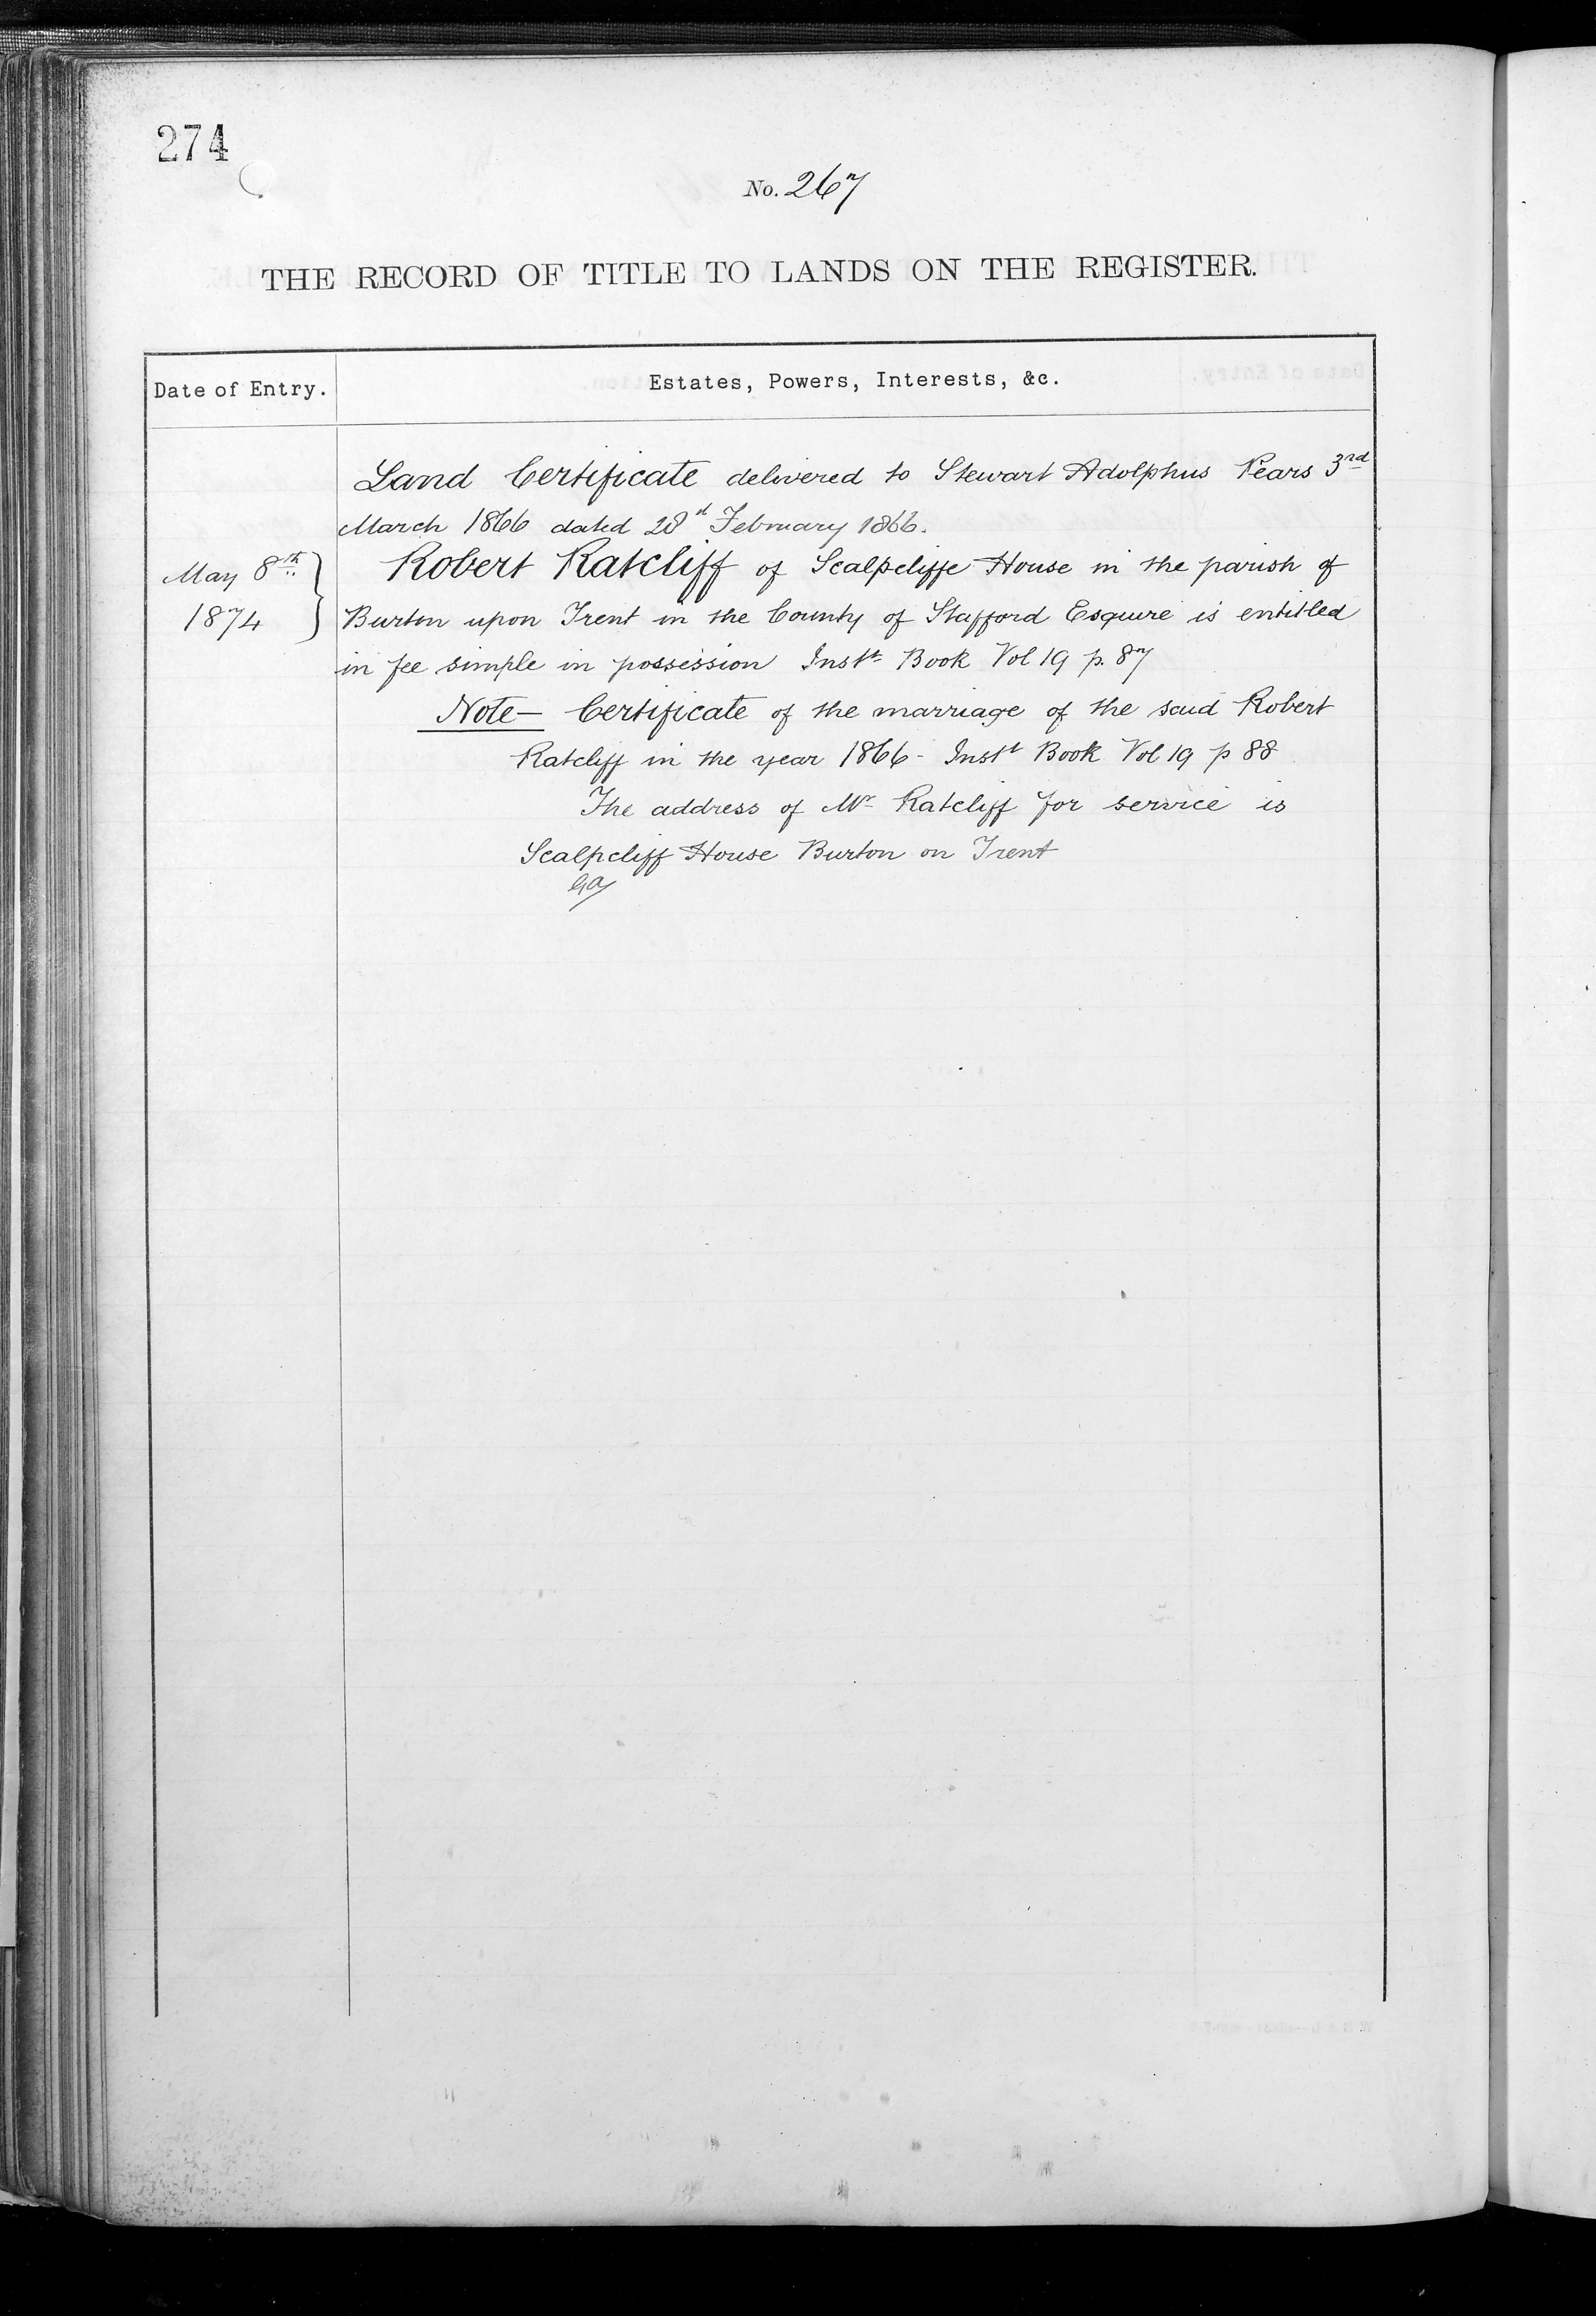 274
No. 267
THE RECORD OF TITLE TO LANDS ON THE REGISTER.
Date of Entry.
Estates, Powers, Interests, &c.
Land Certificate delivered to Stewart Adolphus Pears 3rd
March 1866 dated 28th February 1866.
May 8th
1874
Robert Ratcliff of Scalpcliffe House in the parish of
Burton upon Trent in the County of Stafford Esquire is entitled
in fee simple in possession Instt Book Vol 19 p. 87
Note— Certificate of the marriage of the said Robert
Ratcliff in the year 1866 - Instt Book Vol 19 p 88
The address of Mr Ratcliff for service is
Scalpcliff House Burton on Trent